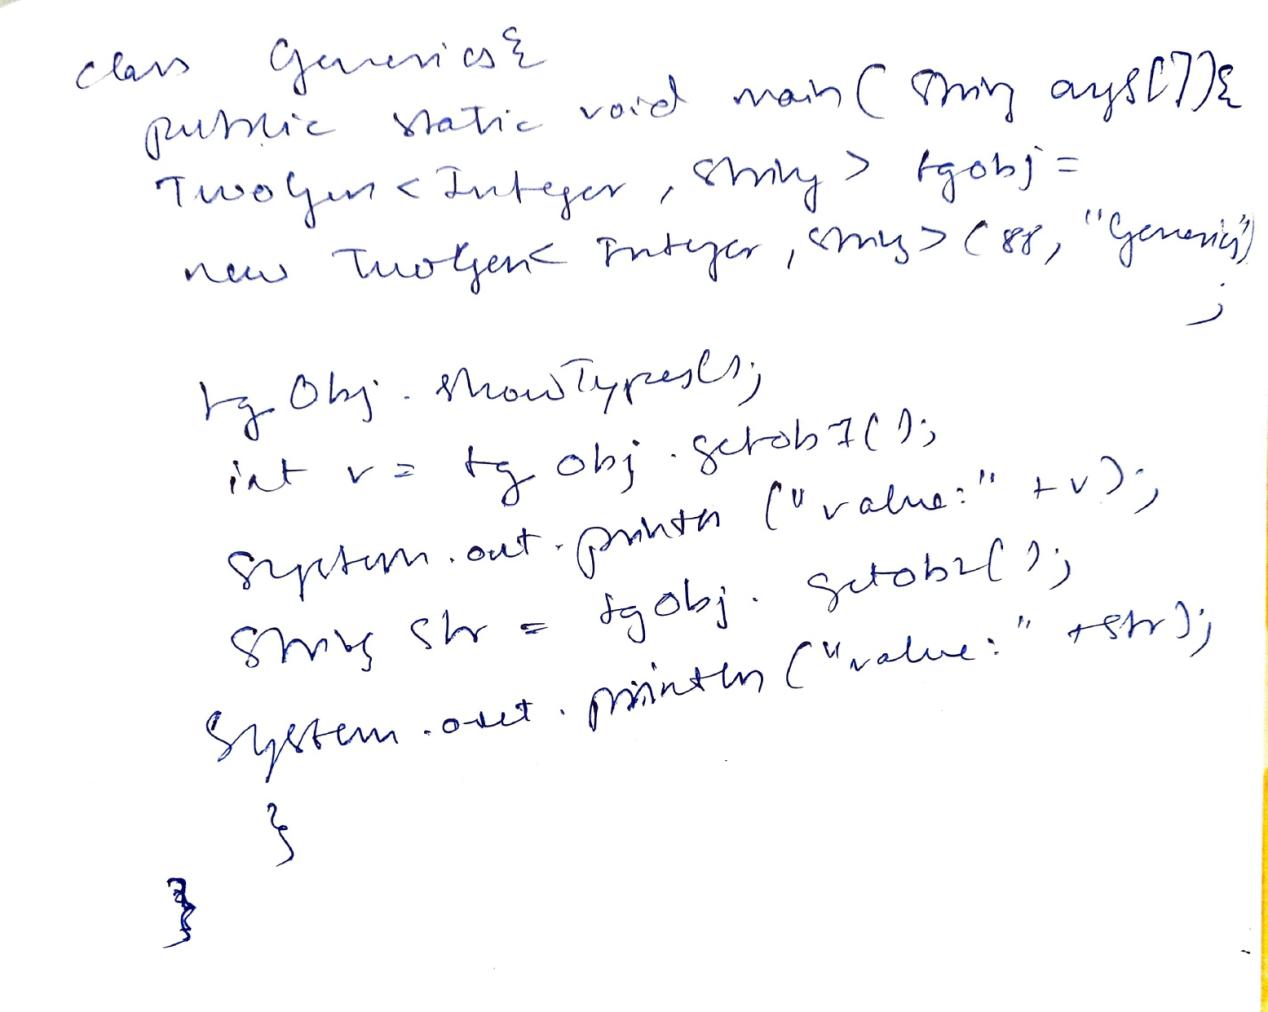 class Generics{
public static void main( String args[]){
TwoGen < Integer , String > tgobj =
new TwoGen< Integer , String > ( 88, "Generics")
;
tgObj . showTypes();
int v = tg obj . getob1();
System . out . println ("value:" + v);
String str = tgobj . getob2();
System . out . println ("value:" +str);
}
}